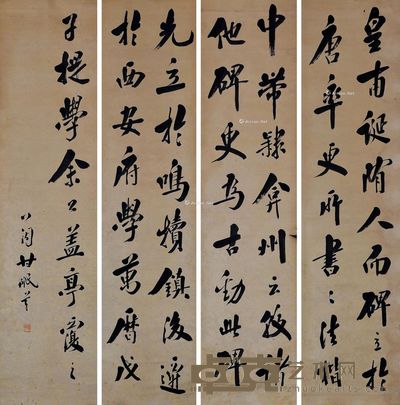 皇甫诞隋人而碑立於
唐率更所書〻法楷
中帶隸弇州云較
他碑更為古勁此碑
先立於鳴犢鎮後遷
於西安府學萬曆戊
子提學余公蓋亭覆之